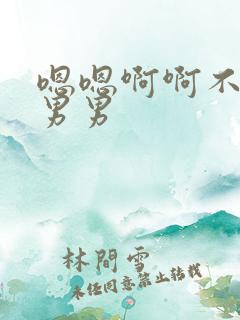 嗯嗯啊啊不
男男
林間雪
未经同意禁止转载